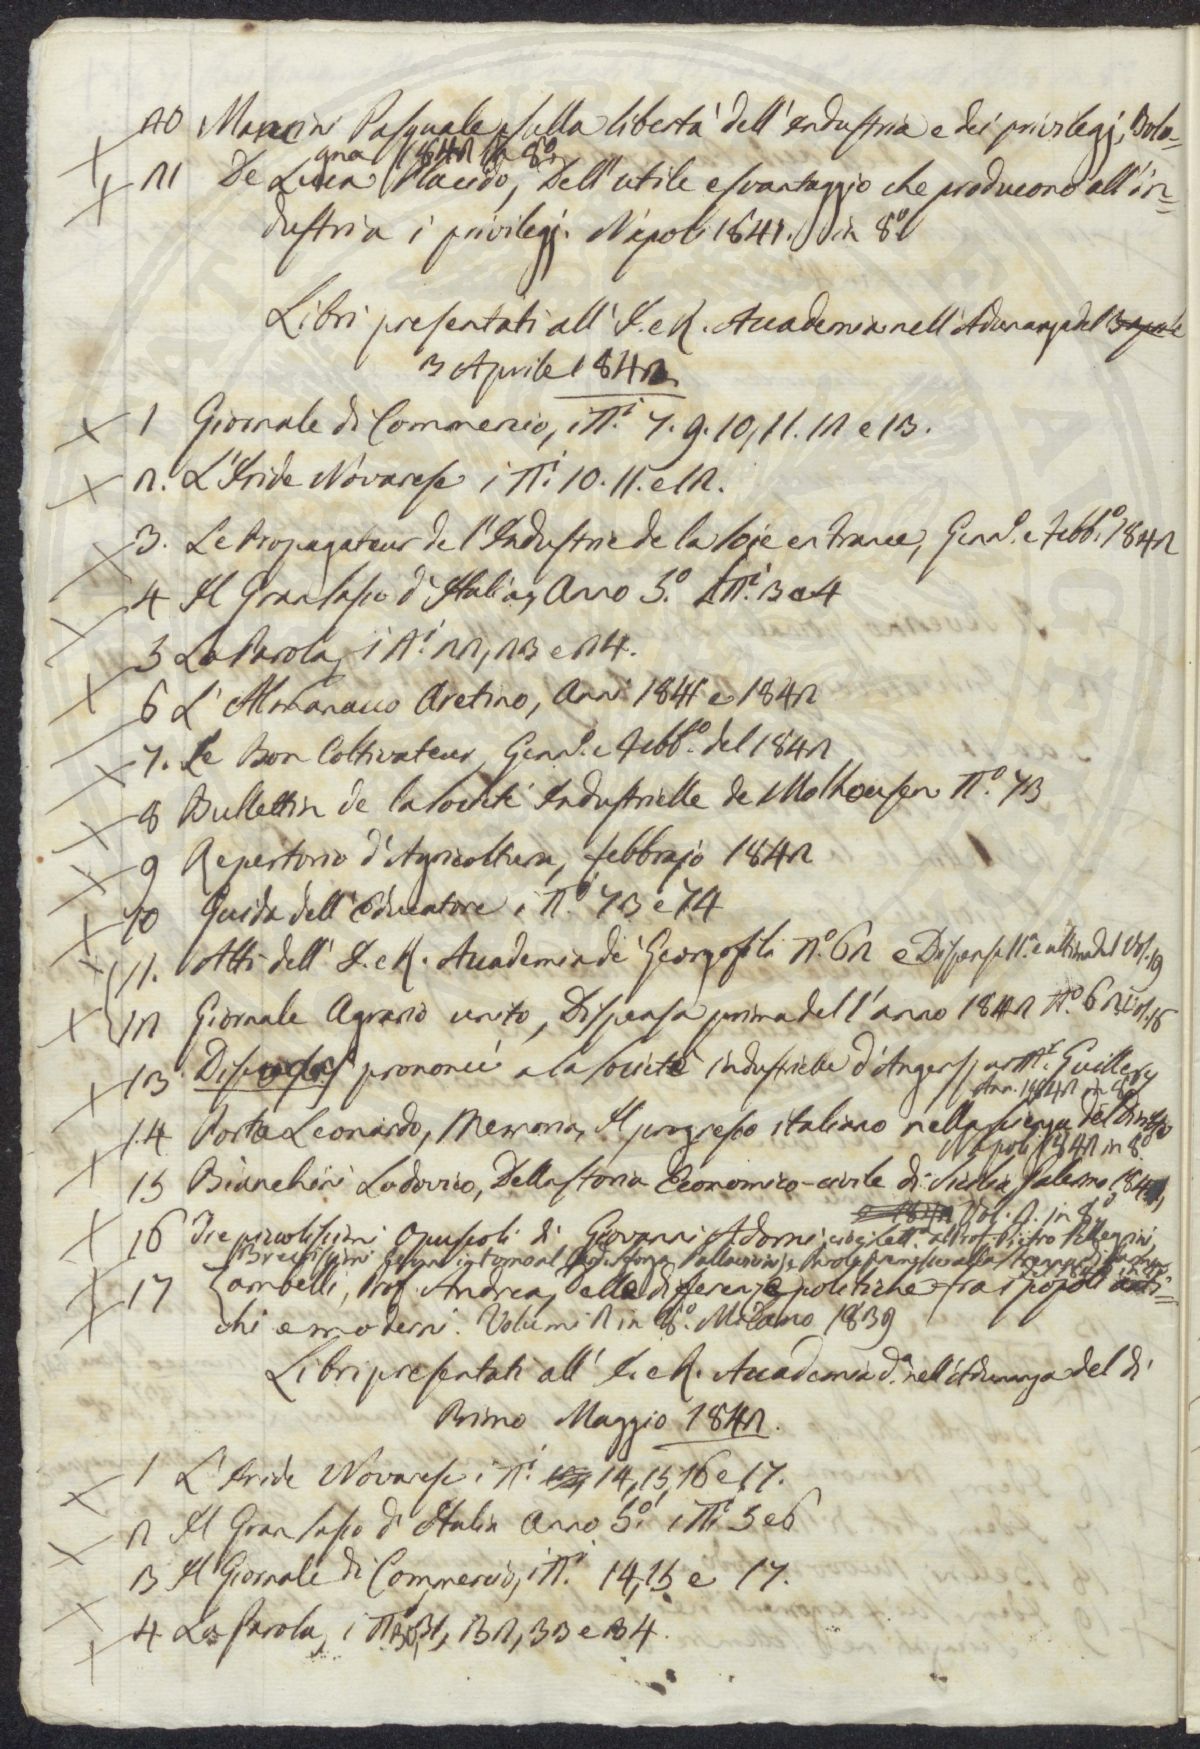 20 Mancini Pasquale, sulla libertà dell'industria e dei privilegj, Bolo=
gna 1842 in 8º
21 De Luca Placido, Dell'utile e svantaggio che producono all'in=
dustria i privilegj. Napoli 1841. in 8º
Libri presentati all'I. e R. Accademia nell'Adunanza del 3 aprile
3 Aprile 1842.
X 1 Giornale di Commercio, i Nⁱ. 7. 9. 10, 11. 12 e 13.
X 2. L'Iride Novarese i Nⁱ. 10. 11. e 12.
X 3. Le Propagateur de l'Industrie de la Soie en France, Gennº. e Febbº. 1842
X 4 Il Gran Sasso d'Italia, Anno 5º. i Nⁱ. 3 e 4
X 5 La Parola, i Nⁱ. 22, 23 e 24.
X 6 L'Almanacco Aretino, Anni 1841 e 1842
X 7. Le Bon Coltivateur, Gennº. e Febbº. del 1842
X 8 Bullettin de la Societé Industrielle de Molhousen Nº. 73
X 9 Repertorio d'Agricoltura, febbrajo 1842
X 10 Guida dell'Educatore i Nⁱ. 73 e 74
X 11. Atti dell'I. e R. Accademia de' Georgofili Nº. 62 e Dispensa 11.ª e ultima del Vol. 19
X 12 Giornale Agrario unito, Dispensa prima dell'anno 1842 Nº. 62 Vol. 16
X 13 Discours prononcé a la Societé industrielle d'Angers par Mr. Guillery
Ann. 1842 in 8º
X 14 Porta Leonardo, Memoria, Il progresso italiano nella scienza del Diritto
Napoli 1842 in 8º
X 15 Bianchini Lodovico, Della storia Economico-civile di Sicilia, Palermo 1841,
Vol. 2. in 8º
X 16 Tre piccolissimi opuscoli di Giovanni Adorni, cioè lett.ª al Prof. Pietro Pellegrini,
Brevissimi
X 17 Zambelli, Prof. Andrea, Delle differenze politiche fra i popoli anti=
chi e moderni. Volumi 2 in 8º. Milano 1839
Libri presentati all'I. e R. Accademia d.ª nell'Adunanza del dì
Primo Maggio 1842.
X 1 L'Iride Novarese i Nⁱ. 14, 15, 16 e 17.
X 2 Il Gran Sasso d'Italia Anno 5º. i Nⁱ. 5 e 6
X 3 Il Giornale di Commercio, i Nⁱ. 14, 15 e 17.
X 4 La Parola, i Nⁱ. 30, 31, 32, 33 e 34.